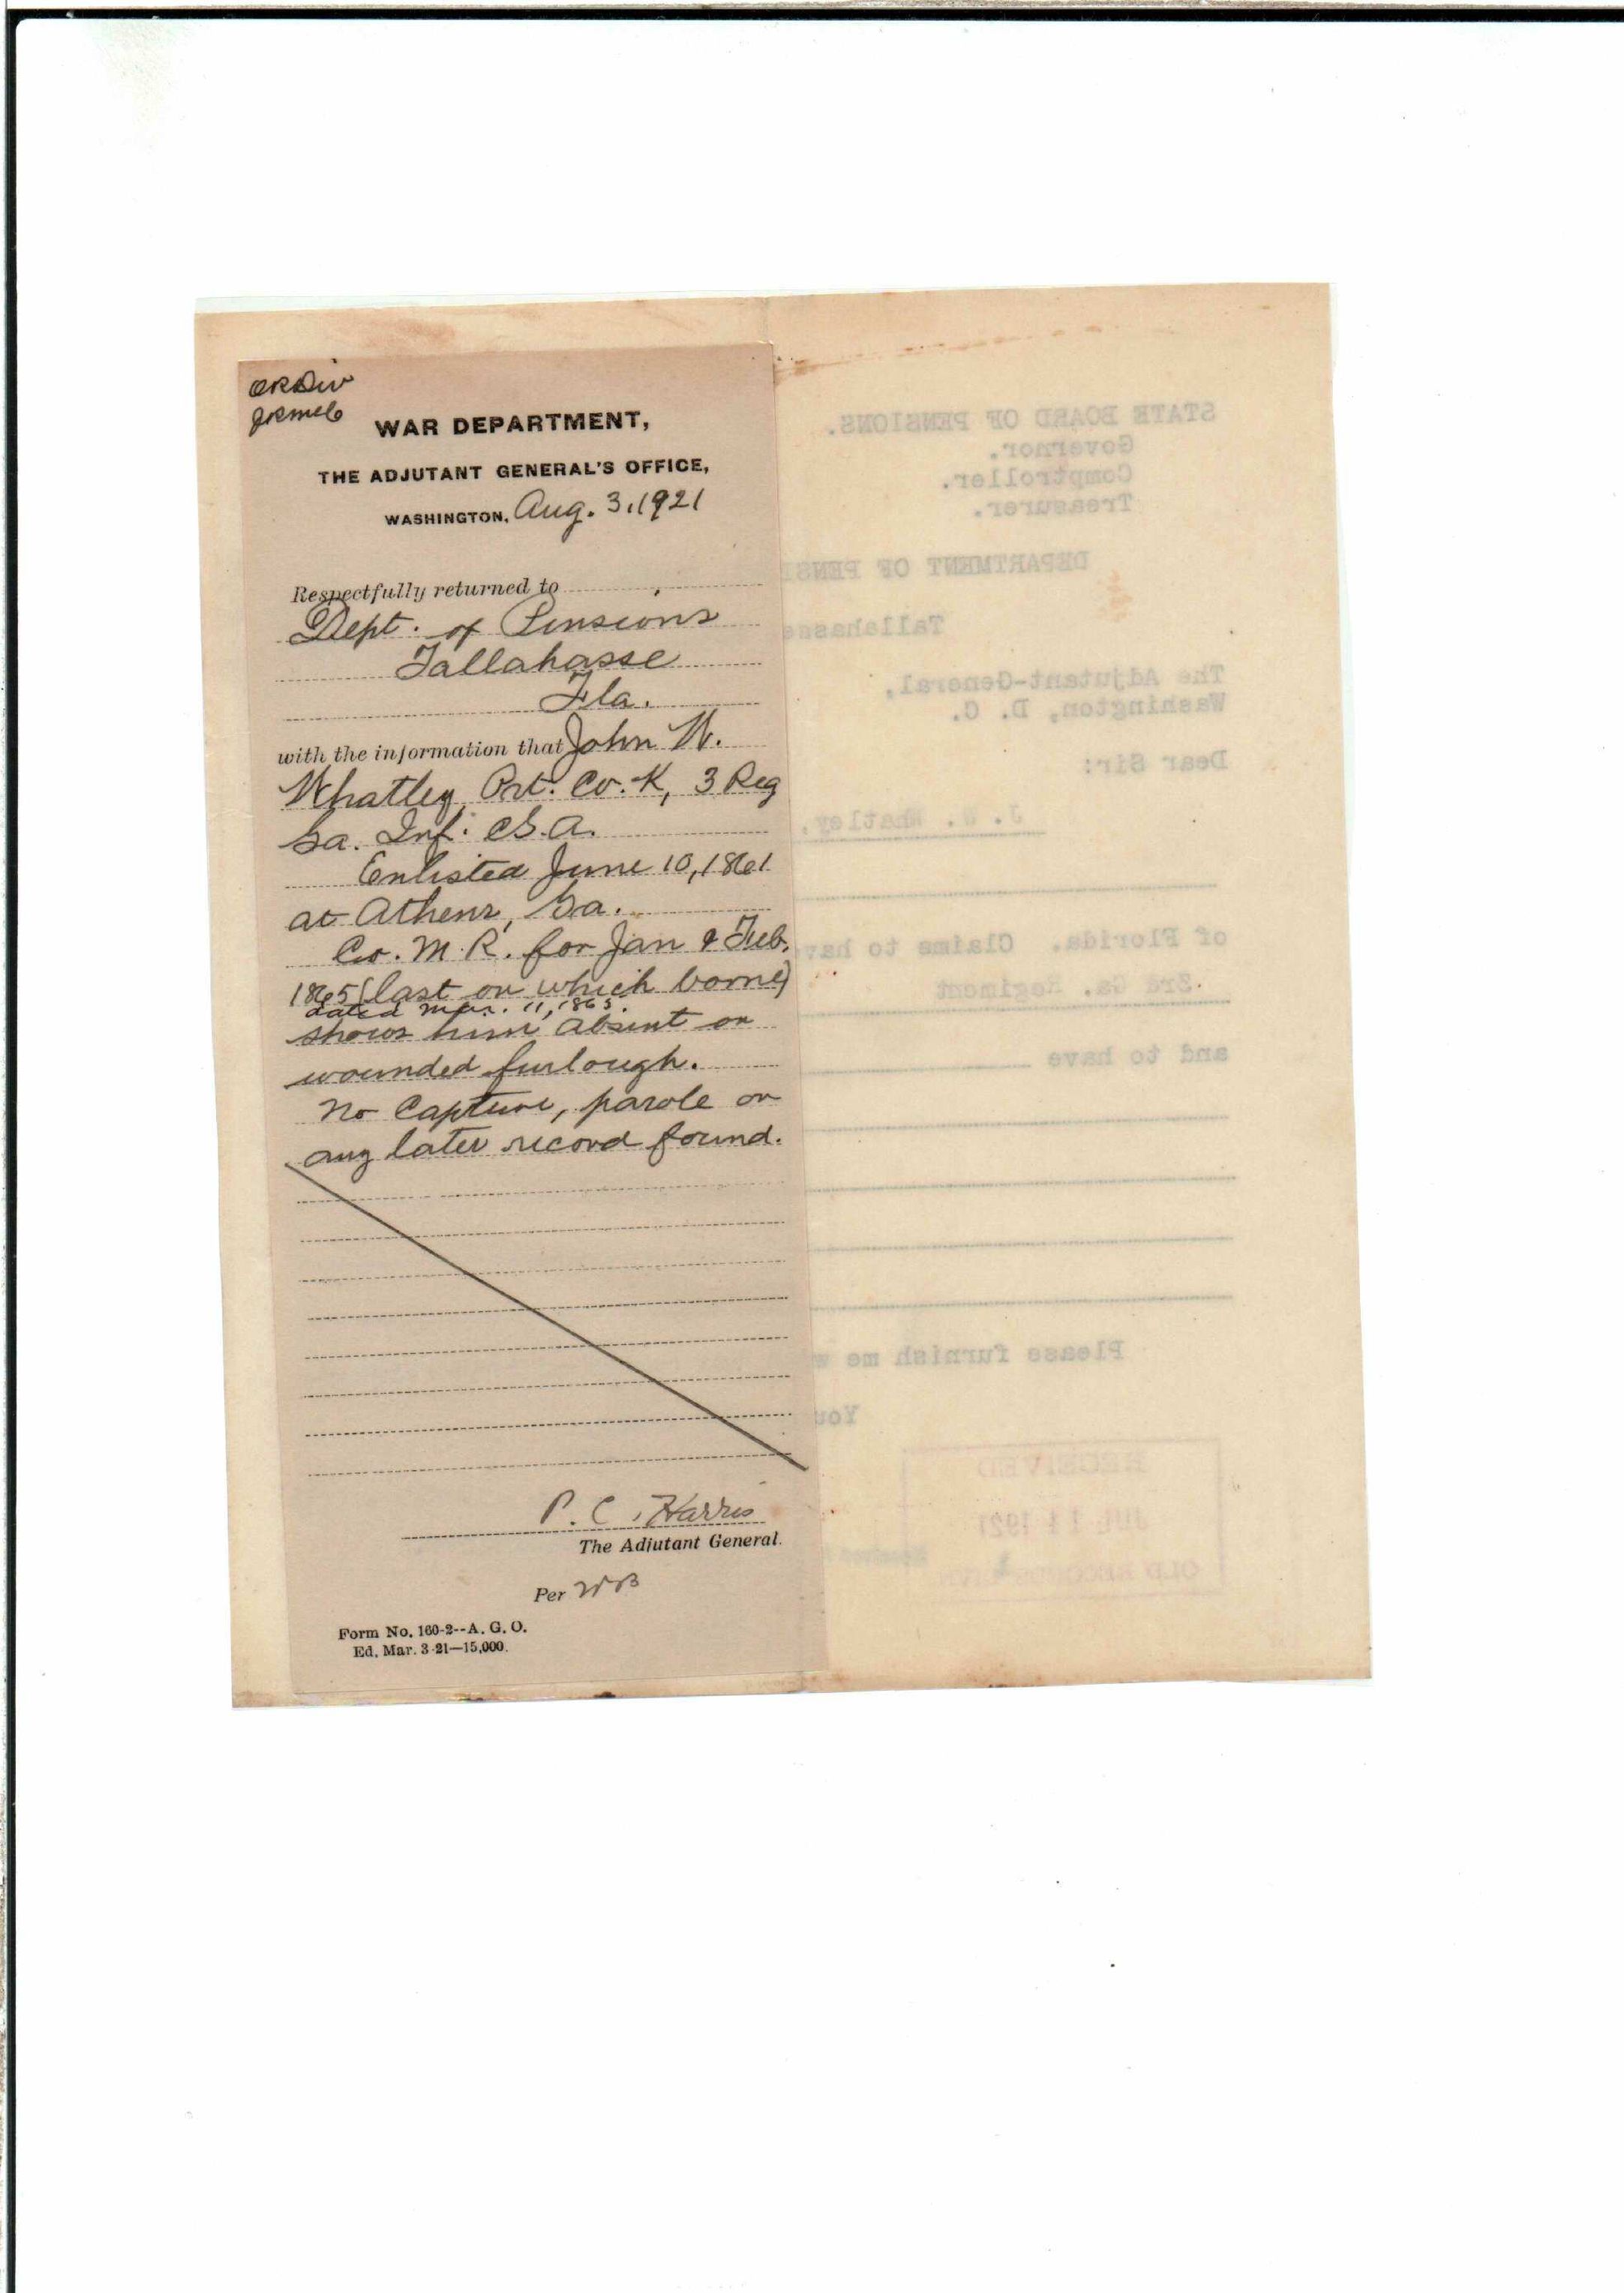 ORDiv
WAR DEPARTMENT,
THE ADJUTANT GENERAL'S OFFICE,
WASHINGTON, Aug. 3, 1921
Respectfully returned to
Dept. of Pensions
Tallahasse
Fla.
with the information that John W.
Whatley, Pvt. Co. K, 3 Reg
Ga. Inf. C.S.A.
Enlisted June 10, 1861
at Athens, Ga.
Co. M. R. for Jan & Feb.
1865 (last on which borne)
dated Mar. 11, 1865.
shows him absent on
wounded furlough.
No capture, parole or
any later record found.
P. C. Harris
The Adjutant General.
Per WB
Form No. 160-2--A. G. O.
Ed. Mar. 3-21—15,000.
STATE BOARD OF PENSIONS.
Governor.
Comptroller.
Treasurer.
DEPARTMENT OF PENSI
Tallahasse
The Adjutant-General,
Washington, D. C.
Dear Sir:
J. W. Whatley,
of Florida. Claims to hav
3rd Ga. Regiment
and to have
Please furnish me w
You
RECEIVED
1921
OLD RECORDS